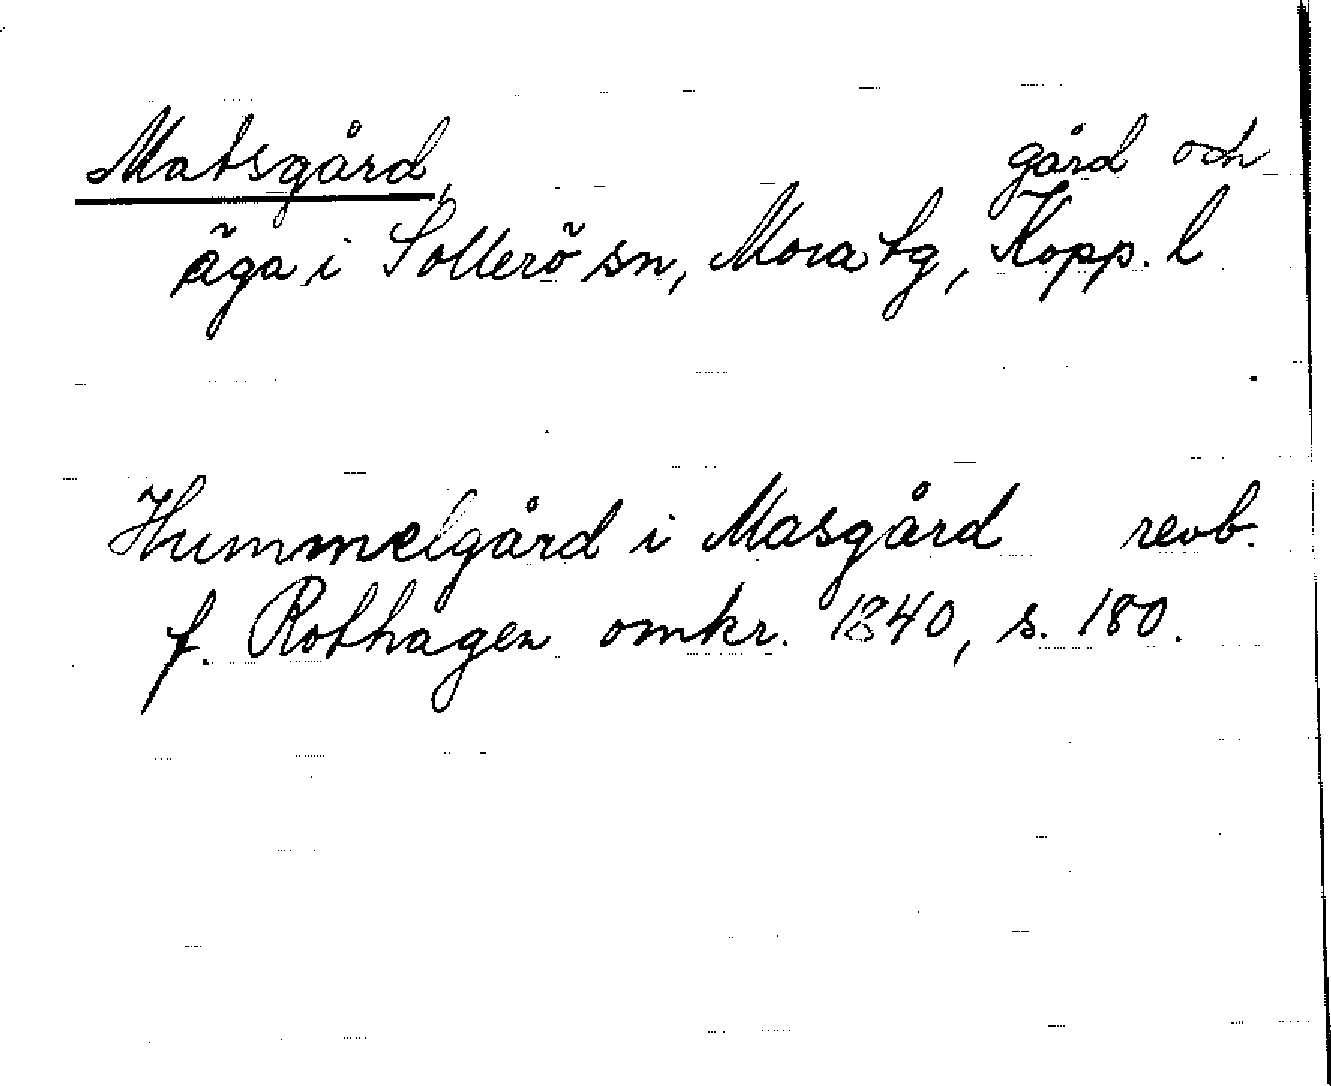 Matsgård, gård och
äga i Sollerö sn, Mora tg, Kopp. l
Hummelgård i Masgård revb.
f. Rothagen omkr. 1840, s. 180.